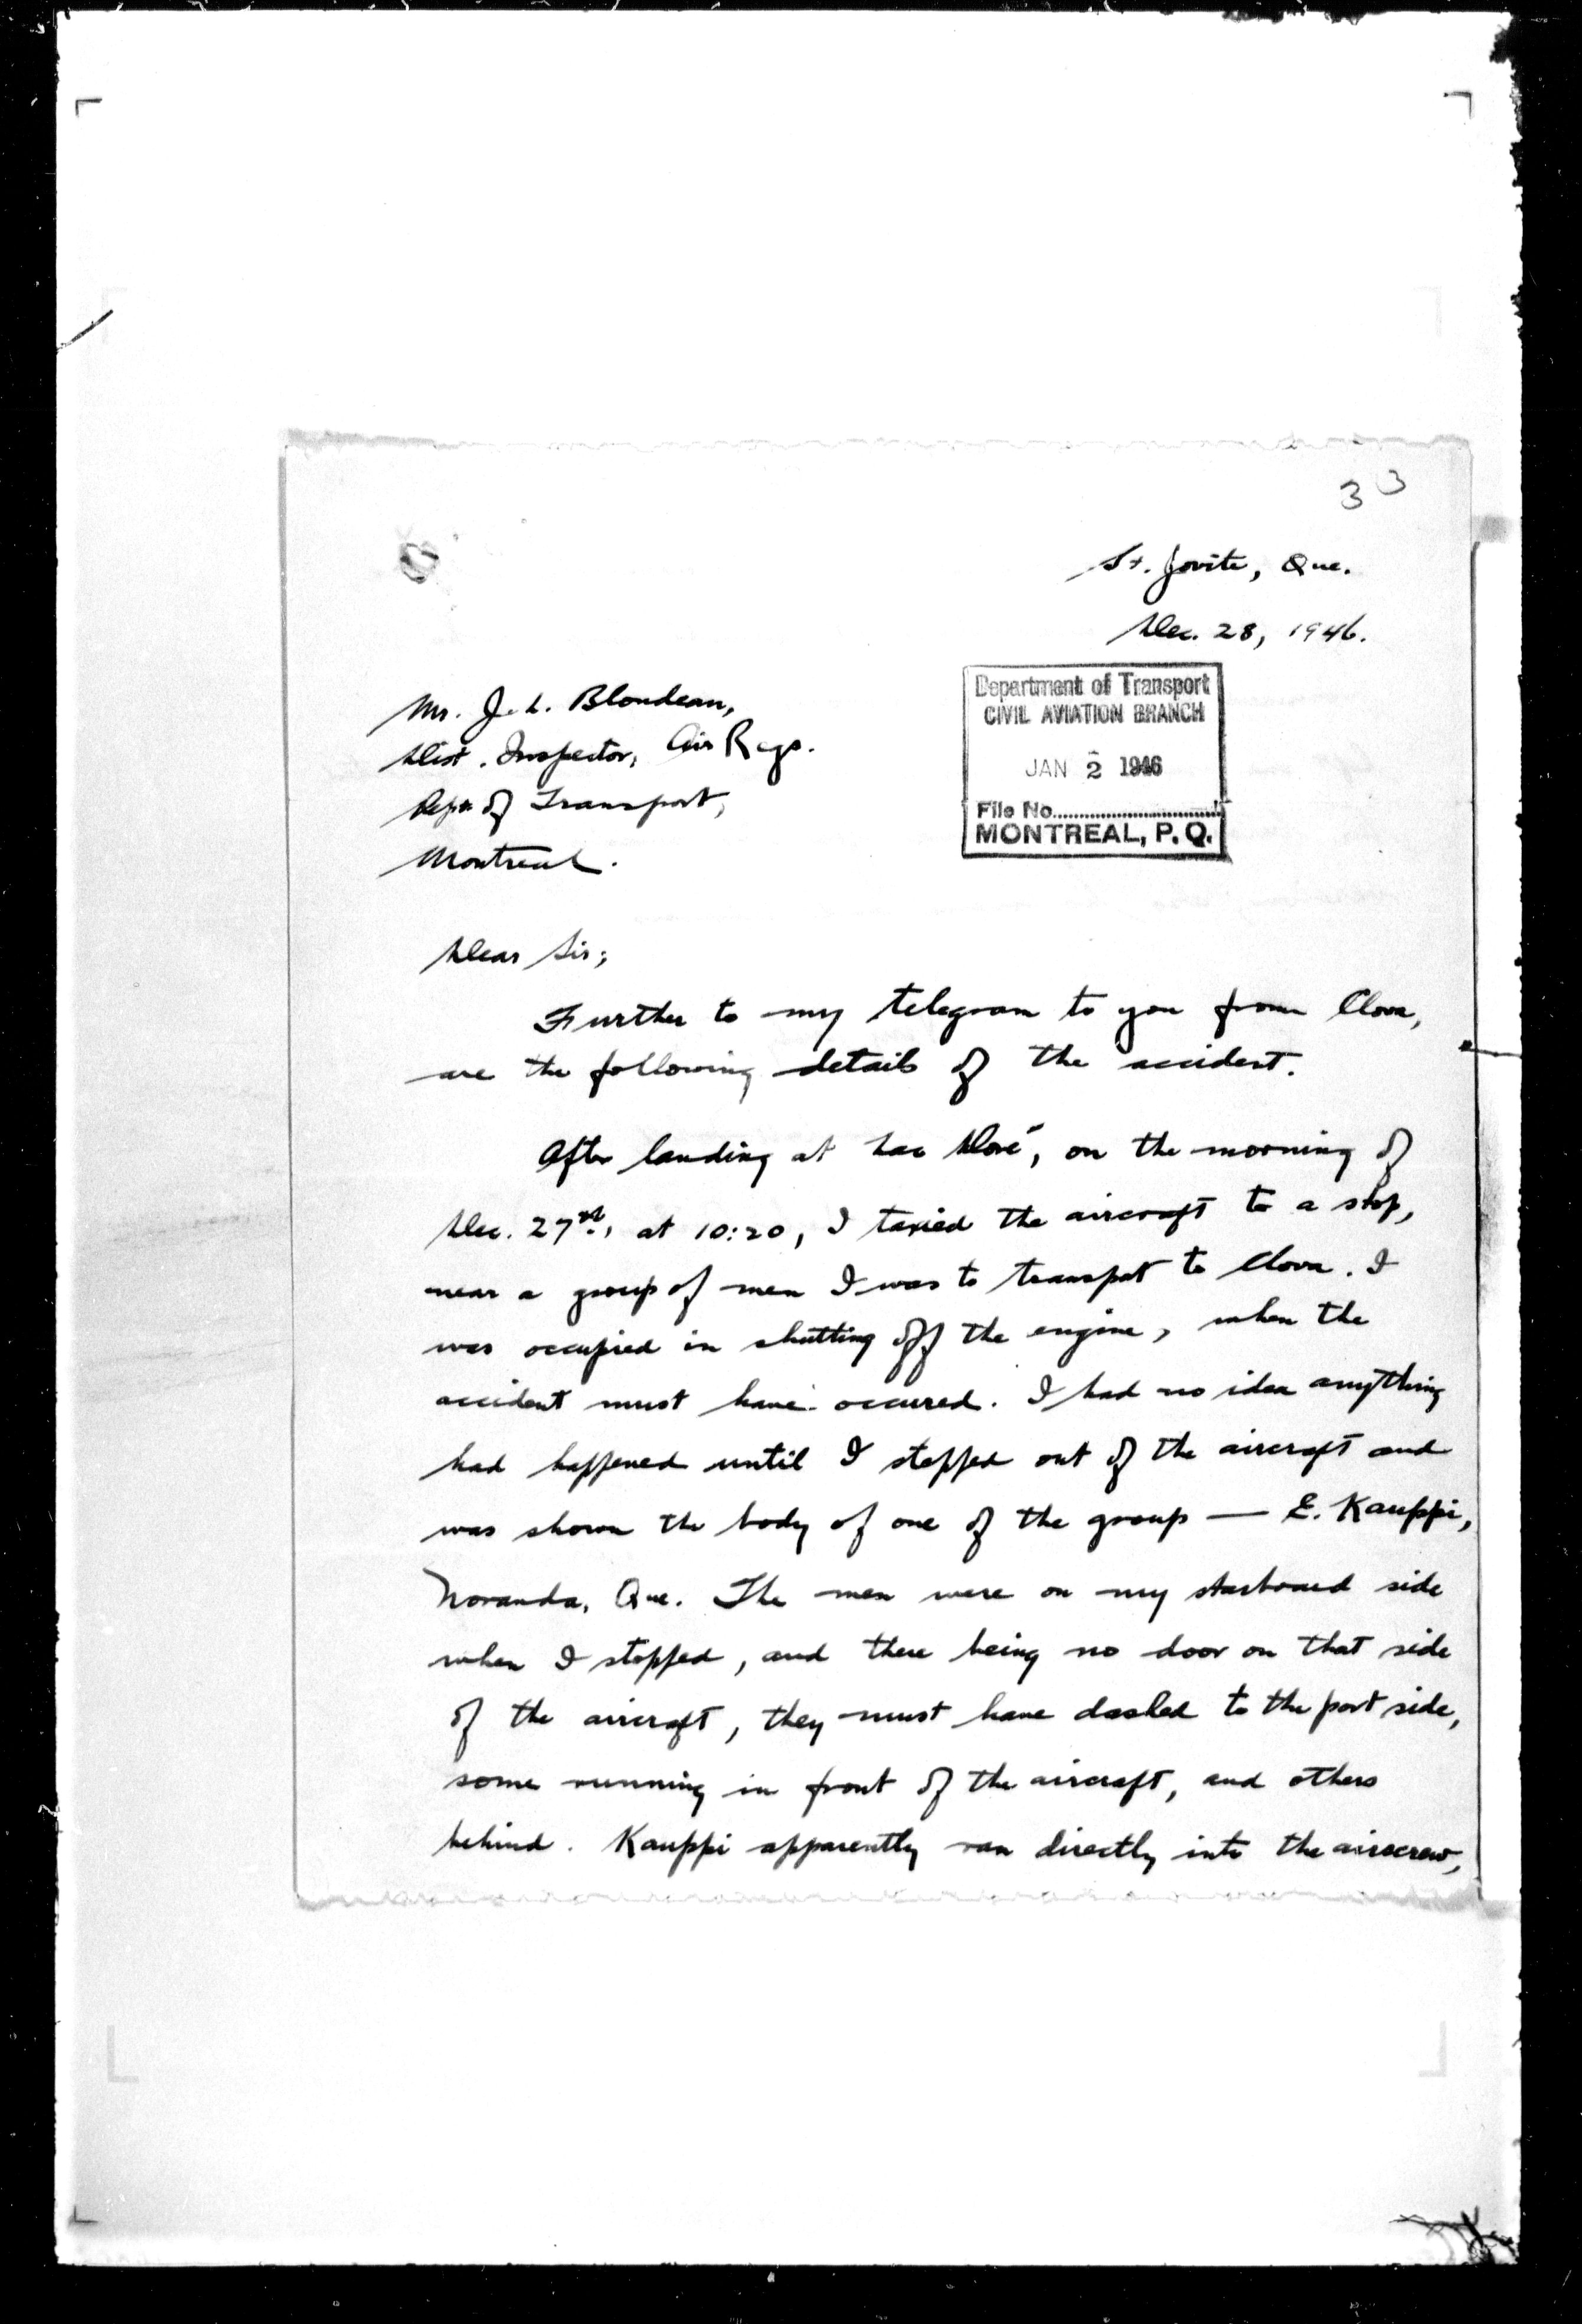 33
St. Jovite, Que.
Dec. 28, 1946.
Department of Transport
CIVIL AVIATION BRANCH
JAN 2 1946
File No.
MONTREAL, P. Q.
Mr. J. L. Blondeau,
Dist. Inspector, Air Regs.
Dept of Transport,
Montreal.
Dear Sir;
Further to my telegram to you from Clova,
are the following details of the accident.
After landing at Lac Doré, on the morning of
Dec. 27th, at 10:20, I taxied the aircraft to a stop,
near a group of men I was to transport to Clova. I
was occupied in shutting off the engine, when the
accident must have occured. I had no idea anything
had happened until I stepped out of the aircraft and
was shown the body of one of the group — E. Kauppi,
Noranda, Que. The men were on my starboard side
when I stopped, and there being no door on that side
of the aircraft, they must have dashed to the port side,
some running in front of the aircraft, and others
behind. Kauppi apparently ran directly into the airscrew,